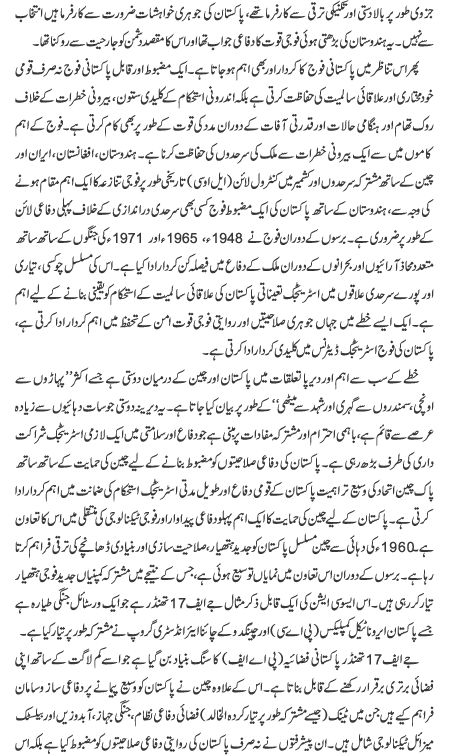 جزوی طور پر بالادستی اور تکنیکی ترقی سے کارفرما تھے، پاکستان کی جوہری خواہشات ضرورت سے کارفرما ہیں انتخاب
سے نہیں۔ یہ ہندوستان کی بڑھتی ہوئی فوجی قوت کا دفاعی جواب تھا اور اس کا مقصد دشمن کو جارحیت سے روکنا تھا۔
پھر اس تناظر میں پاکستانی فوج کا کردار اور بھی اہم ہو جاتا ہے۔ ایک مضبوط اور قابل پاکستانی فوج نہ صرف قومی
خودمختاری اور علاقائی سالمیت کی حفاظت کرتی ہے بلکہ اندرونی استحکام کے کلیدی ستون، بیرونی خطرات کے خلاف
روک تھام اور ہنگامی حالات اور قدرتی آفات کے دوران مدد کی قوت کے طور پر بھی کام کرتی ہے۔ فوج کے اہم
کاموں میں سے ایک بیرونی خطرات سے ملک کی سرحدوں کی حفاظت کرنا ہے۔ ہندوستان، افغانستان، ایران اور
چین کے ساتھ مشترکہ سرحدوں اور کشمیر میں کنٹرول لائن (ایل او سی) تاریخی طور پر فوجی تنازعہ کا ایک اہم مقام ہونے
کی وجہ سے، ہندوستان کے ساتھ پاکستان کی ایک مضبوط فوج کسی بھی سرحدی دراندازی کے خلاف پہلی دفاعی لائن
کے طور پر ضروری ہے۔ برسوں کے دوران فوج نے 1948ء، 1965ء اور 1971ء کی جنگوں کے ساتھ ساتھ
متعدد محاذ آرائیوں اور بحرانوں کے دوران ملک کے دفاع میں فیصلہ کن کردار ادا کیا ہے۔ اس کی مسلسل چوکسی، تیاری
اور پورے سرحدی علاقوں میں اسٹریٹجک تعیناتی پاکستان کی علاقائی سالمیت کے استحکام کو یقینی بنانے کے لیے اہم
ہے۔ ایک ایسے خطے میں جہاں جوہری صلاحیتیں اور روایتی فوجی قوت امن کے تحفظ میں اہم کردار ادا کرتی ہے،
پاکستان کی فوج اسٹریٹجک ڈیٹرنس میں کلیدی کردار ادا کرتی ہے۔
خطے کے سب سے اہم اور دیرپا تعلقات میں پاکستان اور چین کے درمیان دوستی ہے جسے اکثر ’’پہاڑوں سے
اونچی، سمندروں سے گہری اور شہد سے میٹھی‘‘ کے طور پر بیان کیا جاتا ہے۔ یہ دیرینہ دوستی جو سات دہائیوں سے زیادہ
عرصے سے قائم ہے، باہمی احترام اور مشترکہ مفادات پر مبنی ہے جو دفاع اور سلامتی میں ایک لازمی اسٹریٹجک شراکت
داری کی طرف بڑھ رہی ہے۔ پاکستان کی دفاعی صلاحیتوں کو مضبوط بنانے کے لیے چین کی حمایت کے ساتھ ساتھ
پاک چین اتحاد کی وسیع تر اہمیت پاکستان کے قومی دفاع اور طویل مدتی اسٹریٹجک استحکام کی ضمانت میں اہم کردار ادا
کرتی ہے۔ پاکستان کے لیے چین کی حمایت کا ایک اہم پہلو دفاعی پیداوار اور فوجی ٹیکنالوجی کی منتقلی میں اس کا تعاون
ہے۔ 1960ء کی دہائی سے چین مسلسل پاکستان کو جدید ہتھیار، صلاحیت سازی اور بنیادی ڈھانچے کی ترقی فراہم کرتا
رہا ہے۔ برسوں کے دوران اس تعاون میں نمایاں توسیع ہوئی ہے، جس کے نتیجے میں مشترکہ کمپنیاں جدید فوجی ہتھیار
تیار کر رہی ہیں۔ اس ایسوسی ایشن کی ایک قابل ذکر مثال جے ایف 17 تھنڈر ہے جو ایک ورسٹائل جنگی طیارہ ہے
جسے پاکستان ایروناٹیکل کمپلیکس (پی اے سی) اور چینگدو کے چائنا ایئر انڈسٹری گروپ نے مشترکہ طور پر تیار کیا ہے۔
جے ایف 17 تھنڈر پاکستانی فضائیہ (پی اے ایف) کا سنگ بنیاد بن گیا ہے جو اسے کم لاگت کے ساتھ اپنی
فضائی برتری برقرار رکھنے کے قابل بناتا ہے۔ اس کے علاوہ چین نے پاکستان کو وسیع پیمانے پر دفاعی ساز و سامان
فراہم کیے ہیں جن میں ٹینک (جیسے مشترکہ طور پر تیار کردہ الخالد) فضائی دفاعی نظام، جنگی جہاز، آبدوزیں اور بیلسٹک
میزائل ٹیکنالوجی شامل ہیں۔ ان پیشرفتوں نے نہ صرف پاکستان کی روایتی دفاعی صلاحیتوں کو مضبوط کیا ہے بلکہ اس